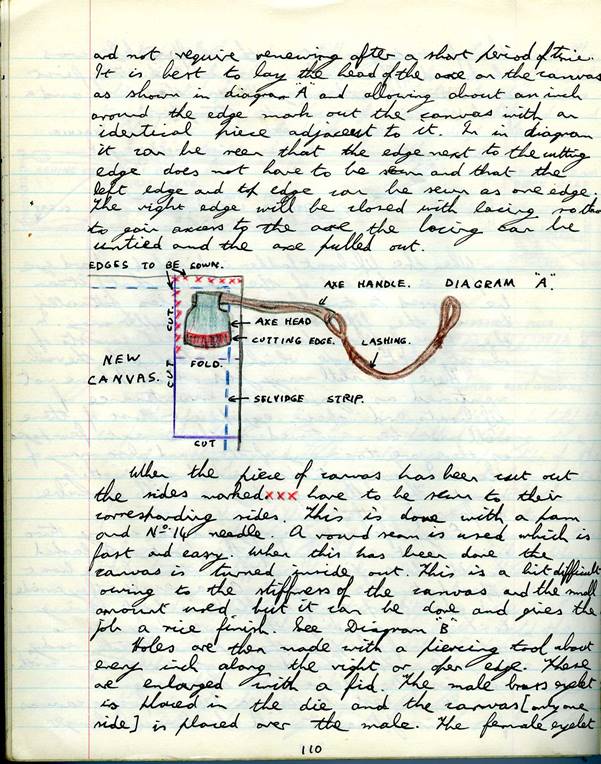 and not require renewing after a short period of time.
It is best to lay the head of the axe on the canvas
as shown in diagram "A" and allowing about an inch
around the edge mark out the canvas with an
identical piece adjacent to it. In in diagram
it can be seen that the edge next to the cutting
edge does not have to be sewn and that the
left edge and top edge can be sewn as one edge.
The right edge will be closed with lacing so that
to gain access to the axe the lacing can be
untied and the axe pulled out.
EDGES TO BE SOWN.
AXE HANDLE. DIAGRAM "A".
CUT.
AXE HEAD
CUTTING EDGE. LASHING.
NEW
CANVAS.
CUT
FOLD.
SELVIDGE STRIP.
CUT
When the piece of canvas has been cut out
the sides marked xxx have to be sewn to their
corresponding sides. This is done with a palm
and No 14 needle. A round seam is used which is
fast and easy. When this has been done the
canvas is turned inside out. This is a bit difficult
owing to the stiffness of the canvas and the small
amount used but it can be done and gives the
job a nice finish. See Diagram "B"
Holes are then made with a piercing tool about
every inch along the right or open edge. These
are enlarged with a fid. The male brass eyelet
is placed in the die and the canvas [only one
side] is placed over the male. The female eyelet
110